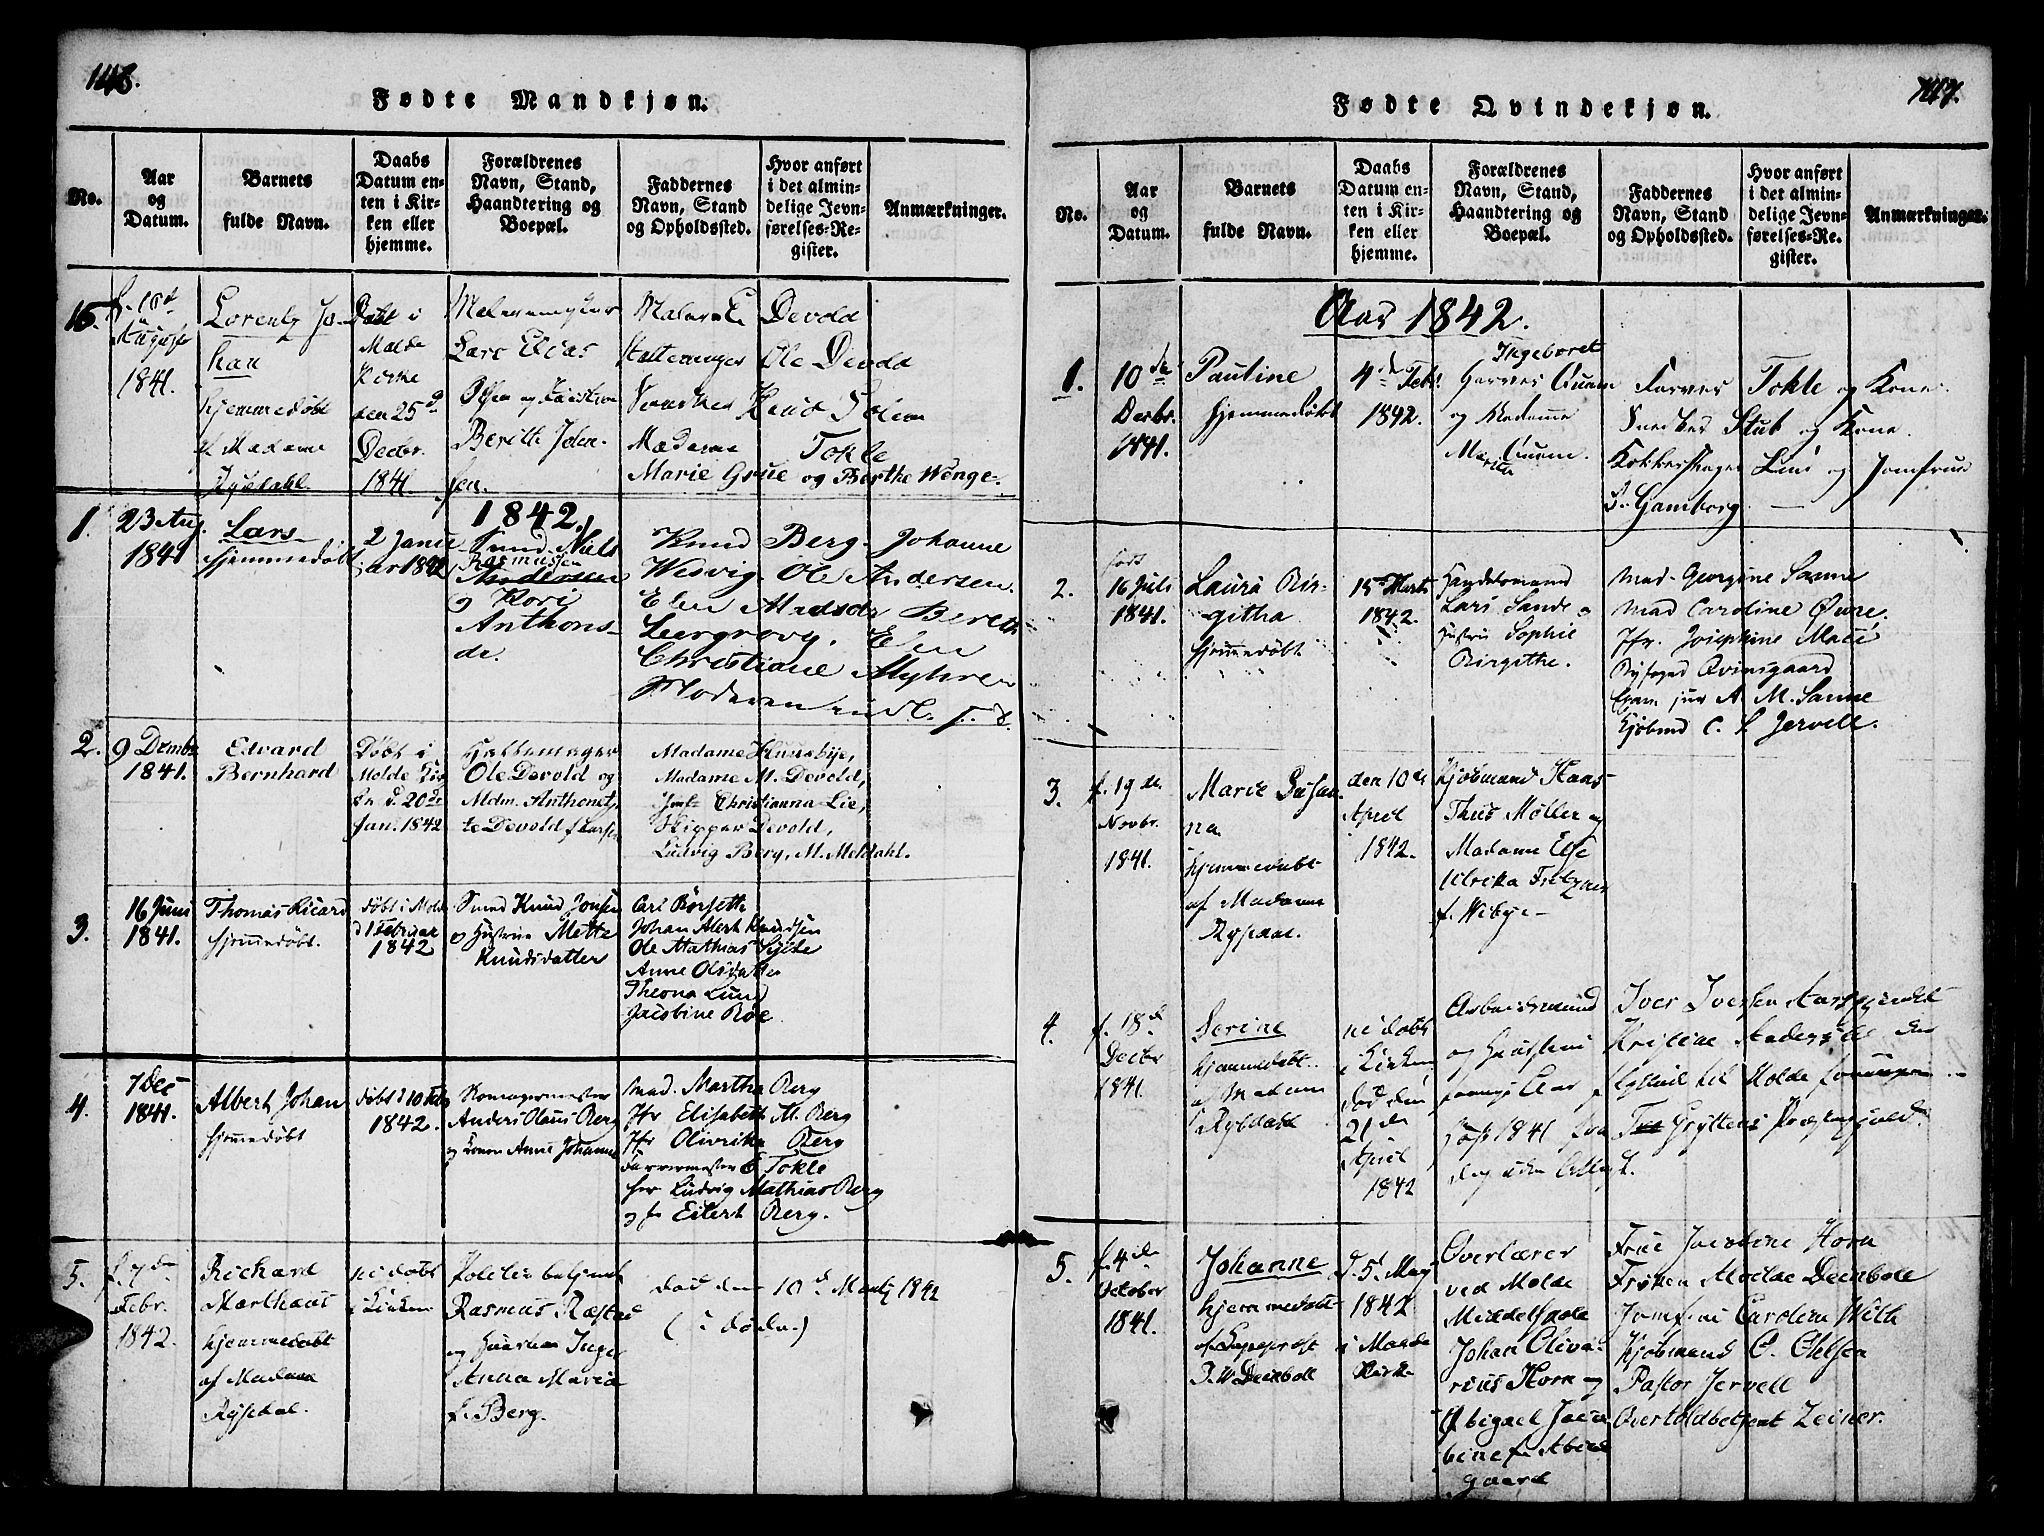 146.
Fødte Mandkjøn.
No.
Aar
og
Datum.
Barnets
fulde Navn.
Daabs
Datum en-
ten i Kir-
ken eller
hjemme.
Forældrenes
Navn, Stand,
Haandtering og
Boepæl.
Faddernes
Navn, Stand
og Opholdssted.
Hvor anført
i det almin-
delige Jevn-
førelses-Re-
gister.
Anmærkninger.
15.
August
1841.
Lorentz Jo-
han
hjemmedøbt
af Madame
Rysdahl
Døbt i
Molde
Kirke
den 25d
Decbr.
1841.
Malermester
Lars Elias
Olsen og
Berith John-
sen.
Maler E. Devold
Ole Devold
Knud Solem
Madame Tokle
Marie Grue og Berthe Wenge.
1842.
1.
23 Aug.
1841
Lars
hjemmedøbt
2 Janu
ar 1842
Smed Niels
Rasmussen
Andersen
og Kari
Anthons-
dr.
Knud Berg. Johanne
Wesvig. Ole Andersen.
Elen Madsdr Bereth
Leergrovig. Elen
Christiane Myhre
Moderen
2.
9 Decmbr
1841.
Edvard
Bernhard
Døbt i
Molde Kir
ke d. 20de
Jan. 1842
Hattemager
Ole Devold og
Mdm. Anthonet-
te Devold f. Larsen
Madame Huusbye,
Madame M. Devold,
Jmfr Christianna Lie,
Skipper Devold,
Ludvig Berg, M. Meldahl.
3.
16 Juni
1841.
Thomas Ricard
hjemmedøbt.
døbt i Mold
d 1 Februar
1842
Smed Knud Jonsen
og Hustrue Mette
Knudsdatter
Cari Børseth
Johan Alert Knudsen
Ole Mathias Sylte
Anne Olsdatter
Theona Lund
Jacobine Roe
4.
7 Dec
1841.
Albert Johan
hjemmedøbt
døbt d 10 Feb
1842.
Anders Olaus Berg
og Konen Anne Johanne
Mad. Martha Berg
Jfr Elisabeth M. Berg
Jfr Olivrike Berg
Farvermester E Tokle
Hr Ludvig Mathias Berg
og Hr Eilert Berg.
5.
f. 7de
Febr.
1842.
Richard
Marthæus
hjemmedøbt
af Madam
Rysdal.
ei døbt
i Kirken
Politiebetjent
Rasmus Ræstad
og Hustrue Inger
Anna Maria
f. Berg.
død den 10d Marty 1842
147.
Fødte Qvindekjøn.
No.
Aar
og
Datum.
Barnets
fulde Navn.
Daabs
Datum en-
ten i Kir-
ken eller
hjemme.
Forældrenes
Navn, Stand,
Haandtering og
Boepæl.
Faddernes
Navn, Stand
og Opholdssted.
Hvor anført
i det almin-
delige Jevn-
førelses-Re-
gister.
Anmærkninger.
Aar 1842.
1.
10de
Decbr.
1841.
Pauline
hjemmedøbt
4de Feb.
1842.
Ingeboret
Garver Quam
og Madame
Martha Quam.
Farver Tokle og Kone.
Snedker Stub og Kone.
Lund og Jomfrue
B. Gamborg.
2.
født
16 Juli
1841.
Laura Bir-
githa
hjemmedøbt
15 Marts
1842.
Handelsmand
Lars Sande og
Hustru Sophie
Birgithe.
Mad. Georgine Sanne
Mad Caroline Øwre.
Jfr. Josephine Motzfeldt
Byfoged Qvinsgaard
Exam jur A. M. Sanne
Kjøbmd C. L Jervell.
3.
f. 19de
Novbr.
1841.
Marie Susan-
na
hjemmedøbt
af Madame
Rysdal.
den 10de
April
1842.
Kjøbmand Hans
Thiis Møller og
Madame Else
Ulrika
f. Wibye
4.
f. 18d
Decbr
1841.
Serine
hjemmedøbt
af Madam
Rysdahl
ei døbt
i Kirken
død den
21de
April
1842
Arbeidsmand Iver Iversen
og Hustrue Kristine Andersdr
til Molde
1841 fra Gryttens Præstegjeld
uden Attest.
5.
f. 4de
October
1841.
Johanne
hjemmedøbt
J. W Deinboll
d. 5d May
1842
i Molde
Kirke
Overlærer
ved Molde
Middelskole
Johan Oliva-
rius Horn og
Abigael Jaco
bine f. Abild
gaard
Frue Jacobine Horn
Frøken Molde Deinboll
Jomfrue Carolein With
Kjøbmand O. Ohlsen
Pastor Jervell
Overtoldbetjent Zeiner.